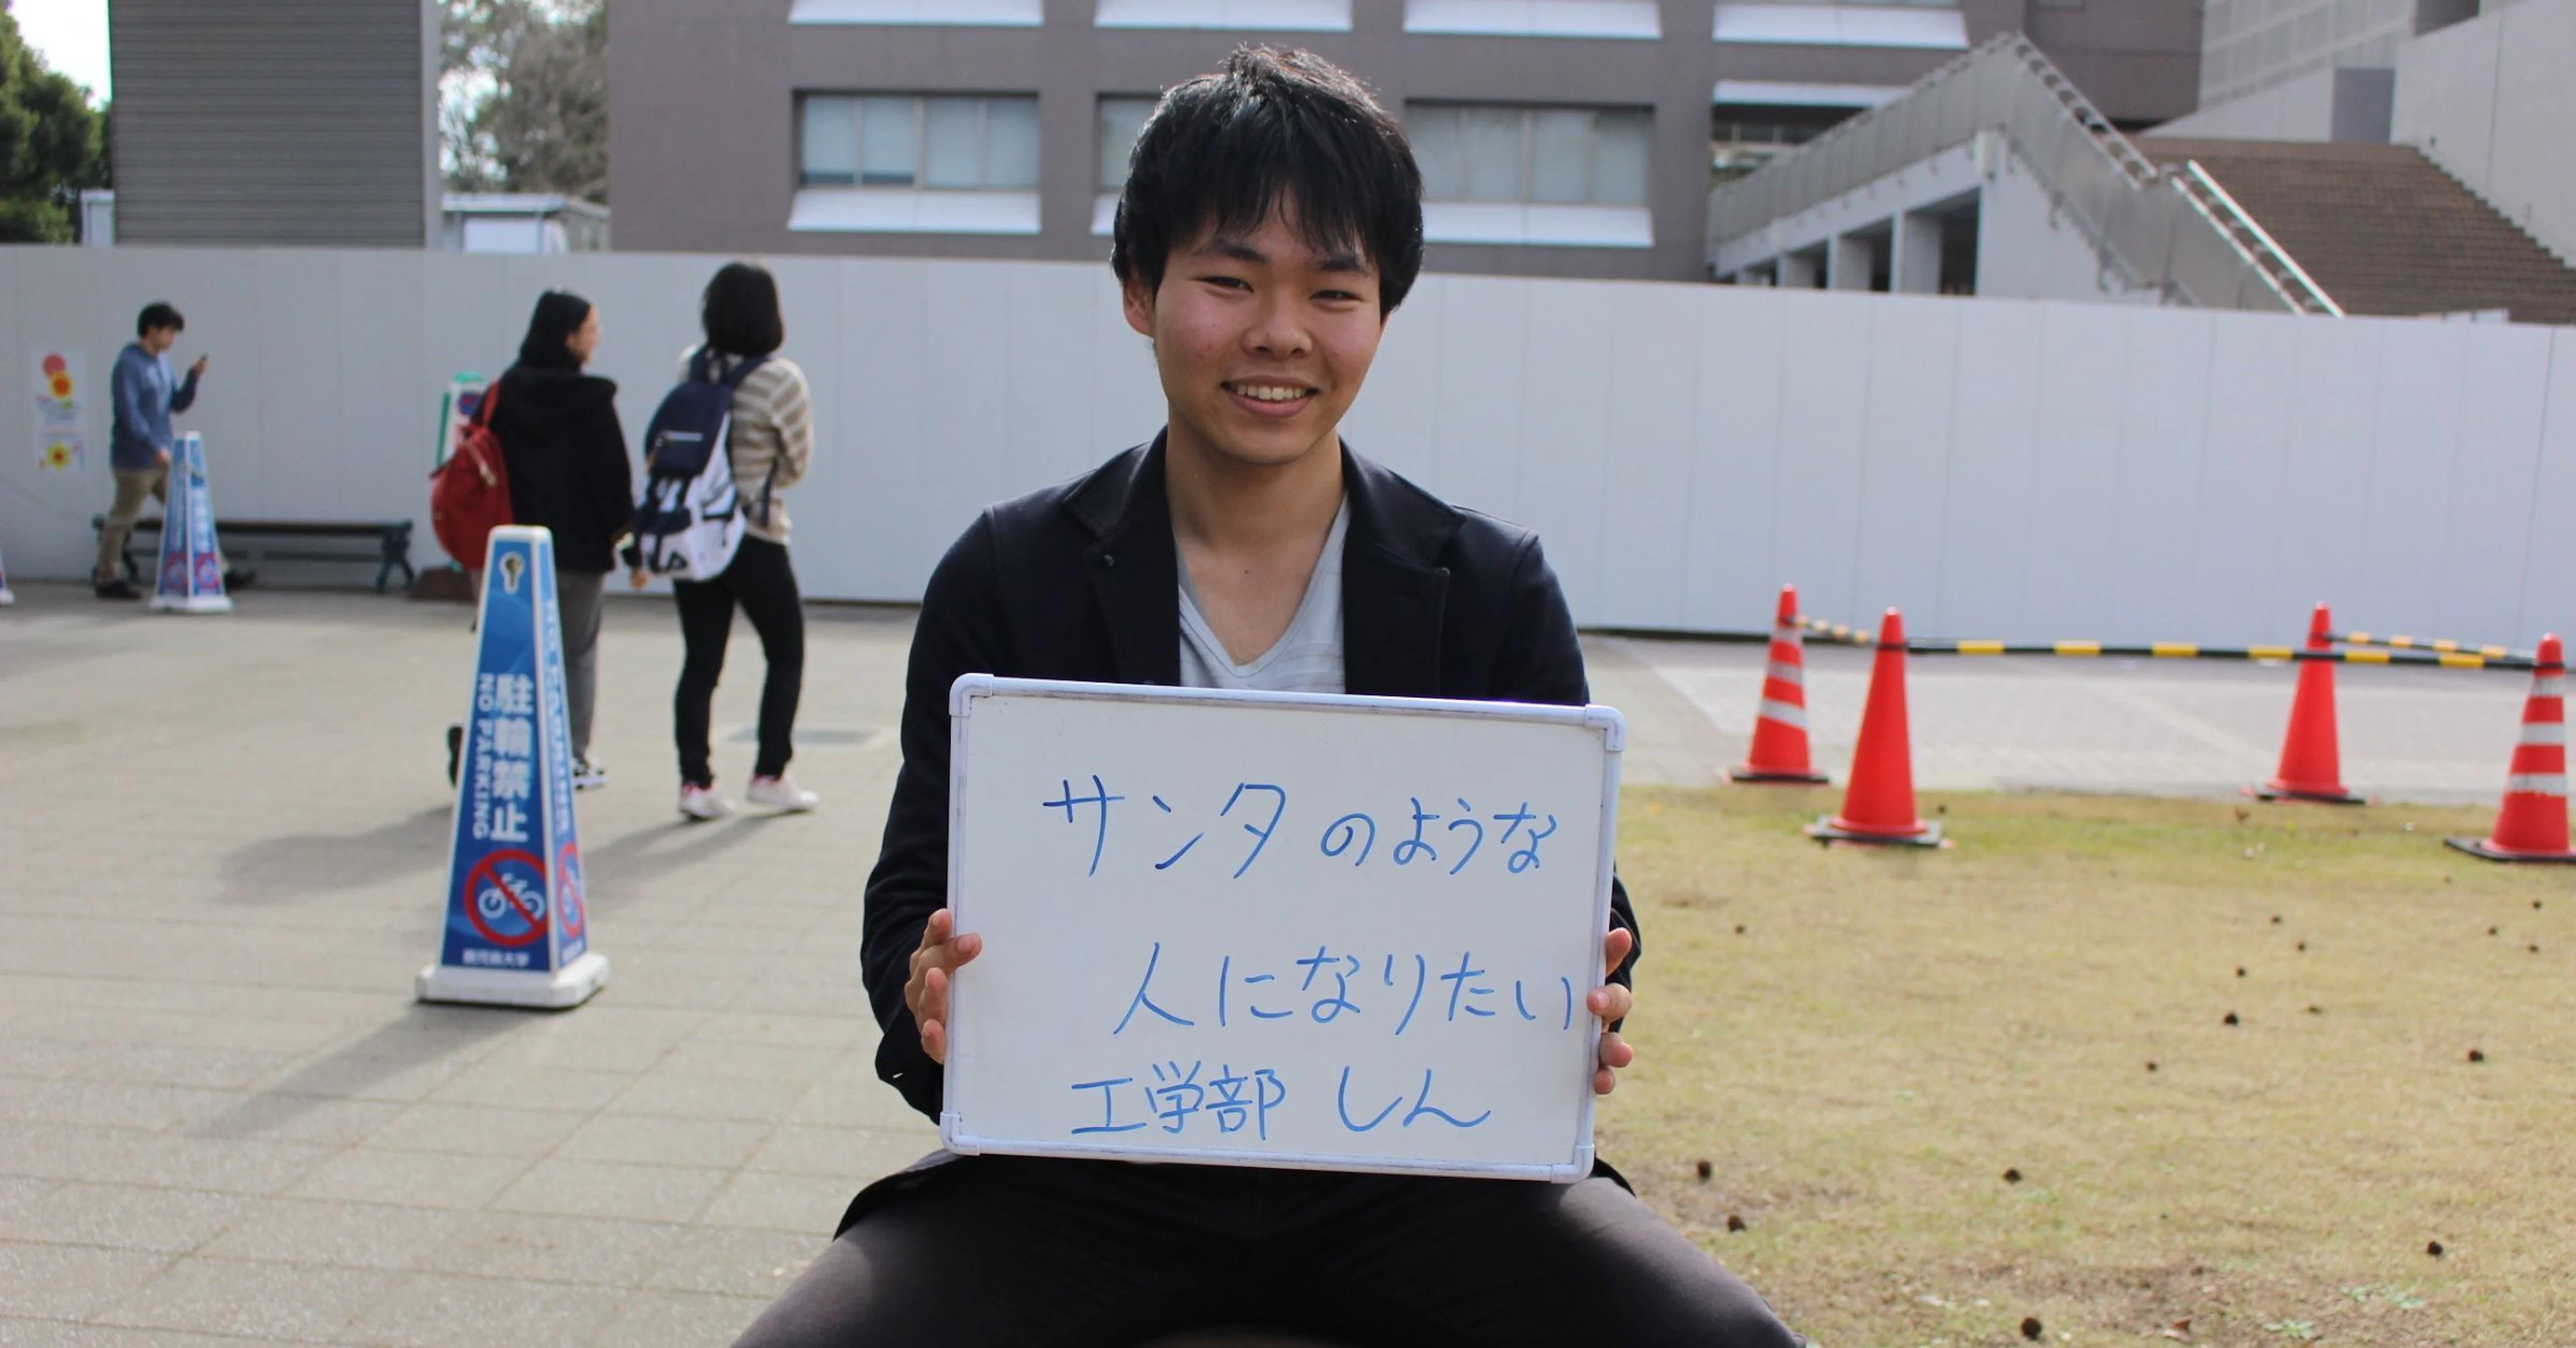 サンタのような
人になりたい
工学部 しん
駐輪禁止
NO PARKING
鹿児島大学